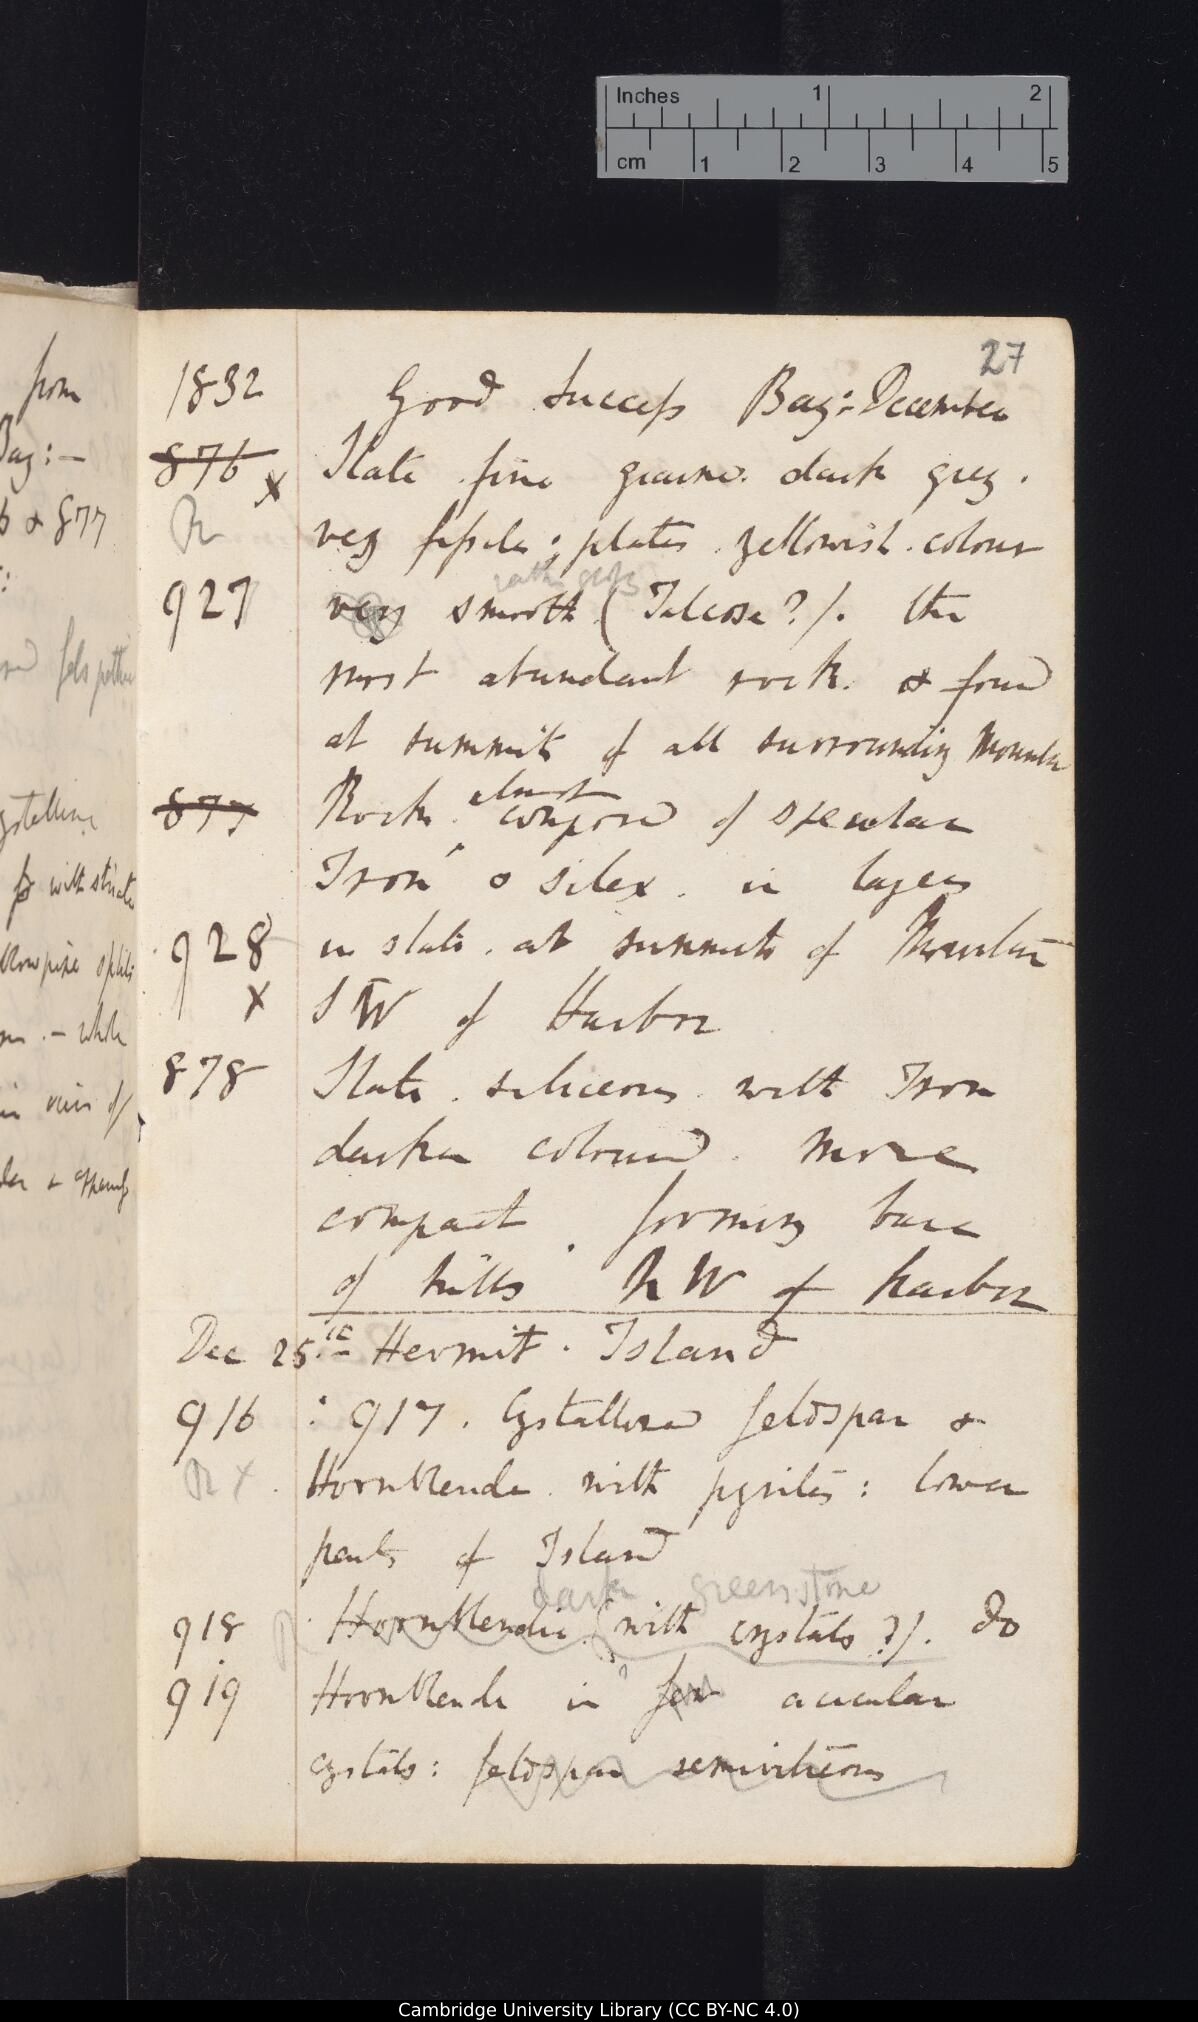 Inches 1 2
cm 1 2 3 4 5
from
Bay:—
6 & 877
with striated
blowpipe splits
— whole
vein of
27
1832 Good Success Bay:- December
876 x Slate fine grained dark grey.
R very fissile; plates yellowish colour
rather glossy
927 very smooth (Talcose?). the
most abundant rock. & found
at summit of all surrounding Mountain
almost
877 Rock composed of specular
Iron & silex. in layers
928 in slate. at summit of Mountain
x SW of Harbor
878 Slate. siliceous with Iron
darker coloured. more
compact. forming base
of hills NW of harbor
Dec 25th Hermit. Island
916 : 917. Crystallized feldspar &
R x Hornblende with pyrites: lower
parts of Island
dark greenstone
918 R Hornblendic (with crystals?). do
919 Hornblende in few acicular
crystals: feldspar semivitreous
Cambridge University Library (CC BY-NC 4.0)